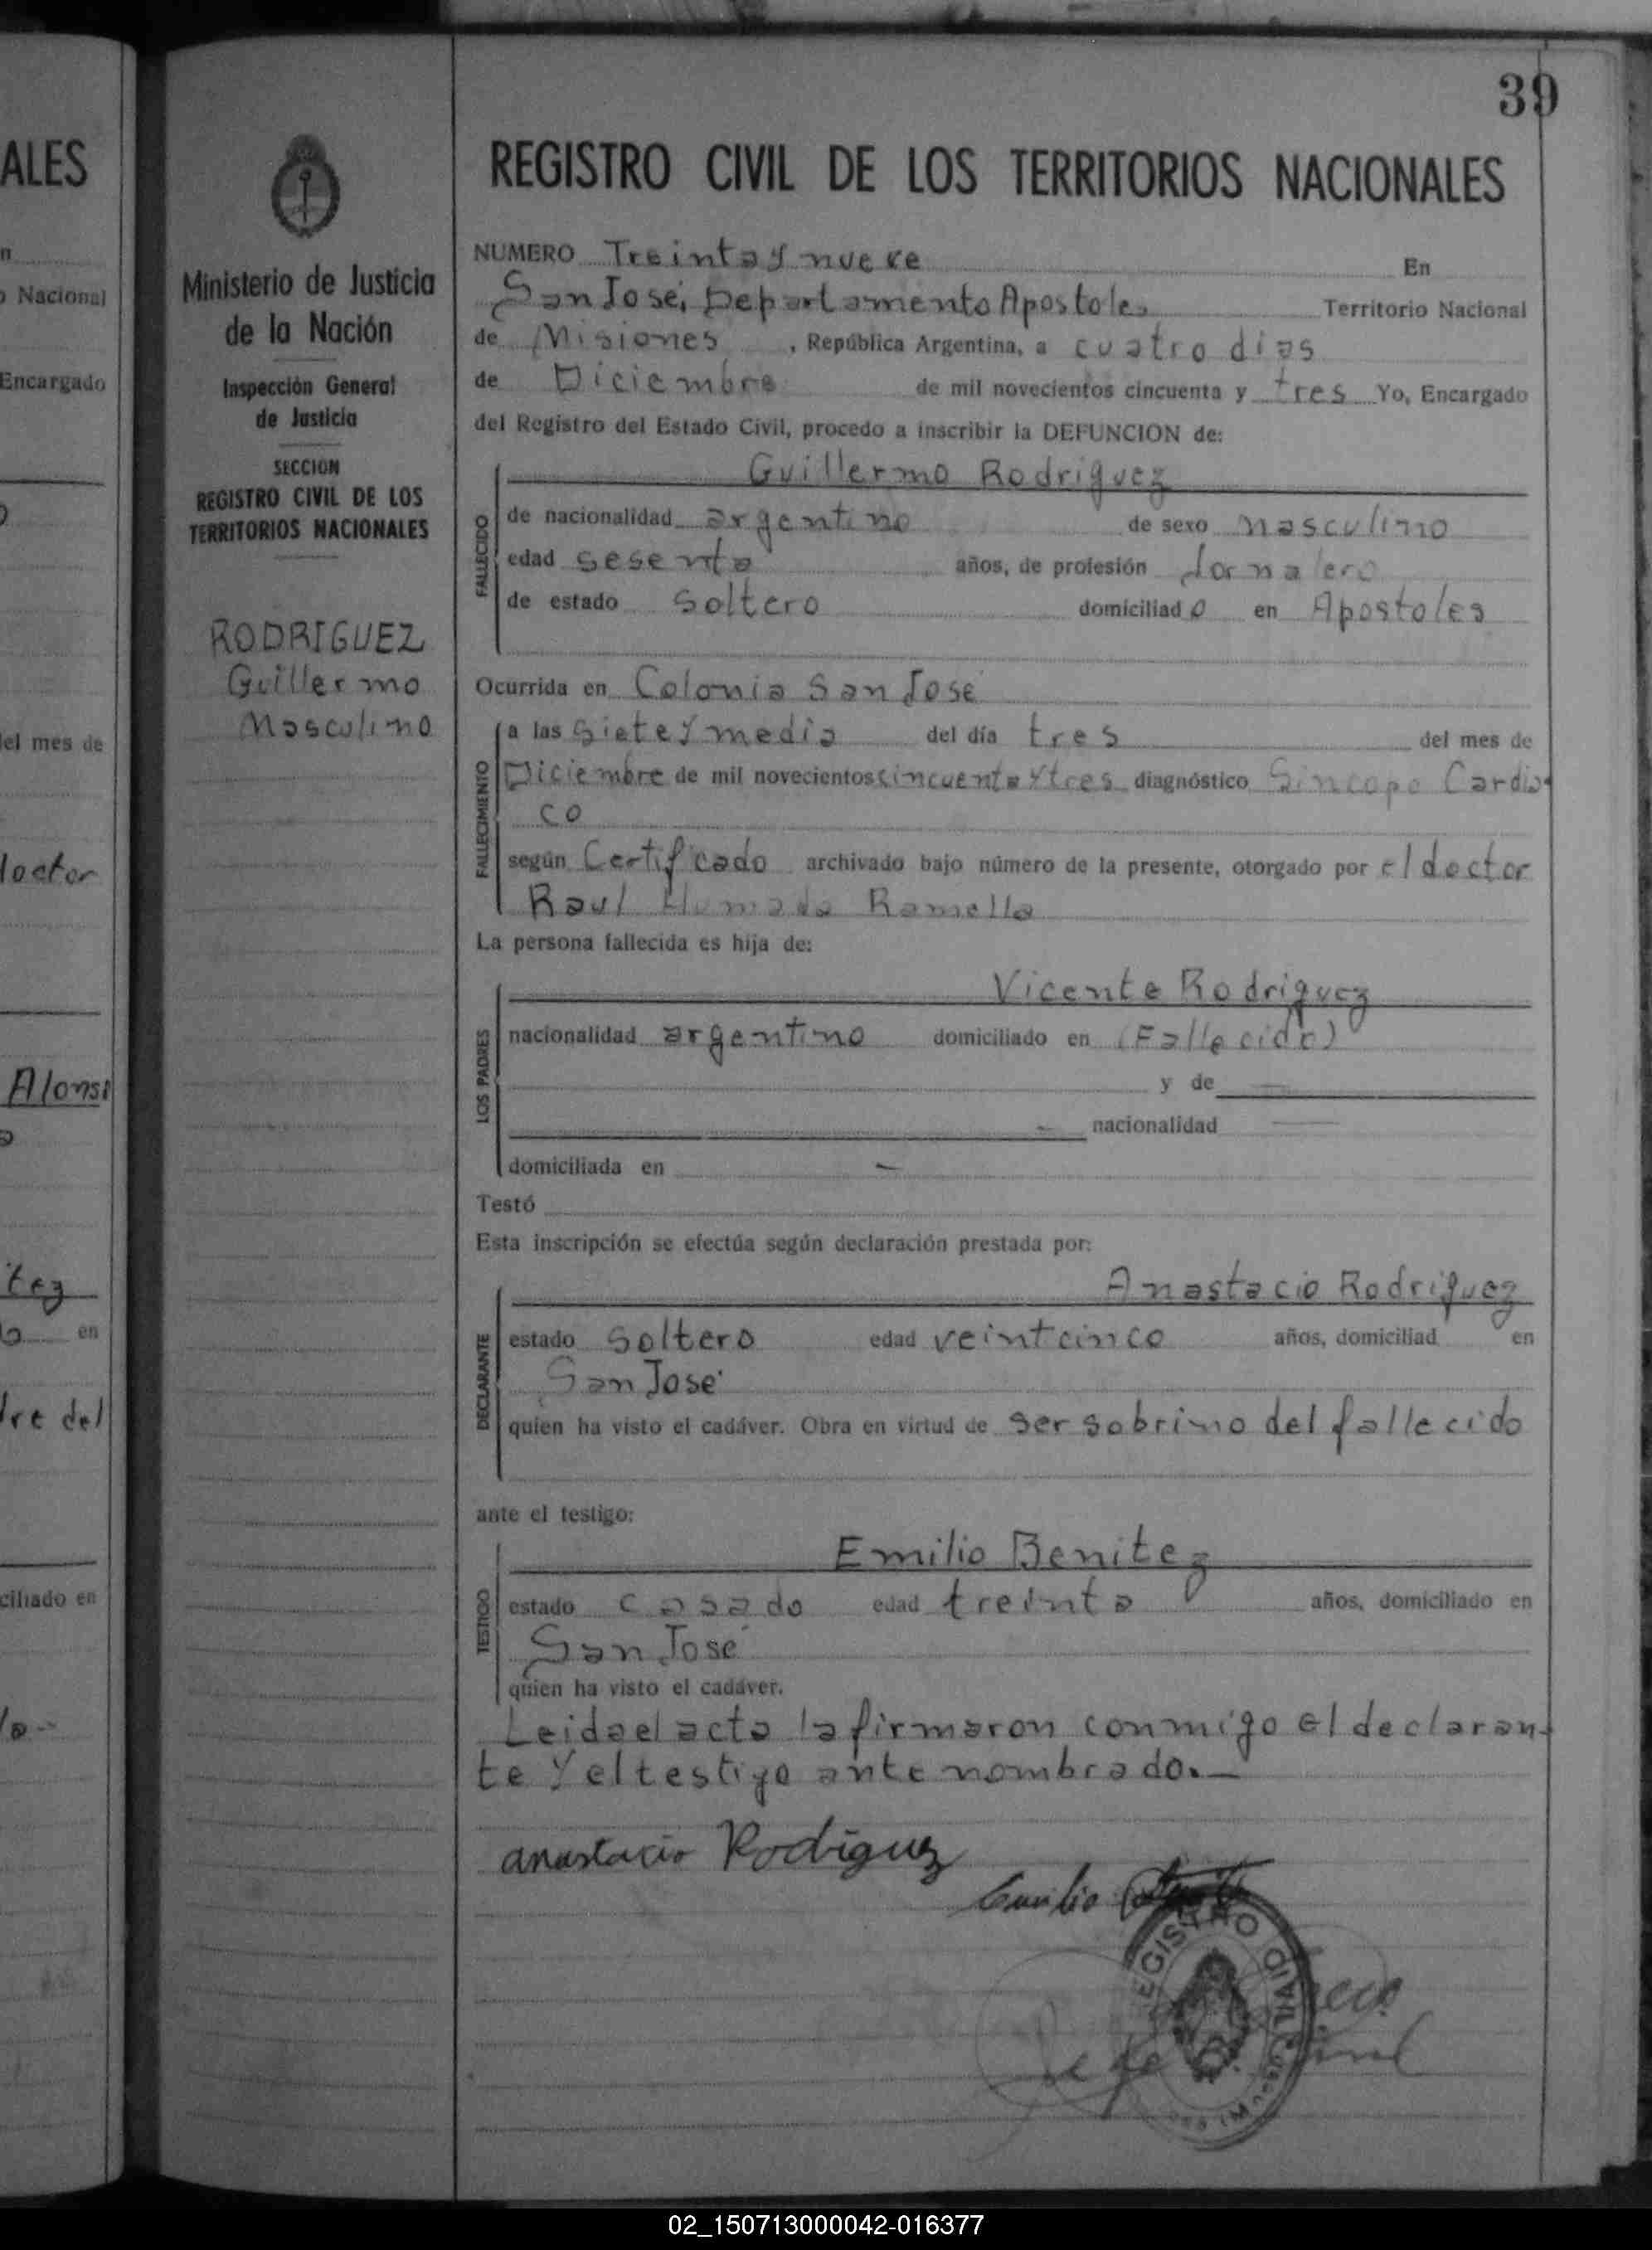 39
ALES
REGISTRO CIVIL DE LOS TERRITORIOS NACIONALES
Ministerio de Justicia
de la Nación
Inspección General
de Justicia
SECCION
REGISTRO CIVIL DE LOS
TERRITORIOS NACIONALES
RODRIGUEZ
Guillermo
Masculino
n
o Nacional
Encargado
del mes de
doctor
Alons
tez
en
dre del
ciliado en
NUMERO Treinta y nueve En
San José, Departamento Apostoles Territorio Nacional
de Misiones, República Argentina, a cuatro dias
de Diciembre de mil novecientos cincuenta y tres Yo, Encargado
del Registro del Estado Civil, procedo a inscribir la DEFUNCION de:
Guillermo Rodriguez
FALLECIDO
de nacionalidad argentino de sexo masculino
edad sesenta años, de profesión Jornalero
de estado soltero domiciliado en Apostoles
Ocurrida en Colonia San José
FALLECIMIENTO
a las siete y media del día tres del mes de
Diciembre de mil novecientos cincuenta y tres diagnóstico Sincope Cardia-
co
según Certificado archivado bajo número de la presente, otorgado por el doctor
Raul Humada Ramella
La persona fallecida es hija de:
LOS PADRES
Vicente Rodriguez
nacionalidad argentino domiciliado en (Fallecido)
y de —
— nacionalidad —
domiciliada en —
Testó
Esta inscripción se efectúa según declaración prestada por:
DECLARANTE
Anastacio Rodriguez
estado soltero edad veintcinco años, domiciliad en
San José
quien ha visto el cadáver. Obra en virtud de ser sobrino del fallecido
ante el testigo:
TESTIGO
Emilio Benitez
estado casado edad treinta años, domiciliado en
San José
quien ha visto el cadáver.
Leida el acta la firmaron conmigo el declaran-
te y el testigo ante nombrado.—
anastacio Rodiguez
Emilio
REGISTRO CIVIL
02_150713000042-016377